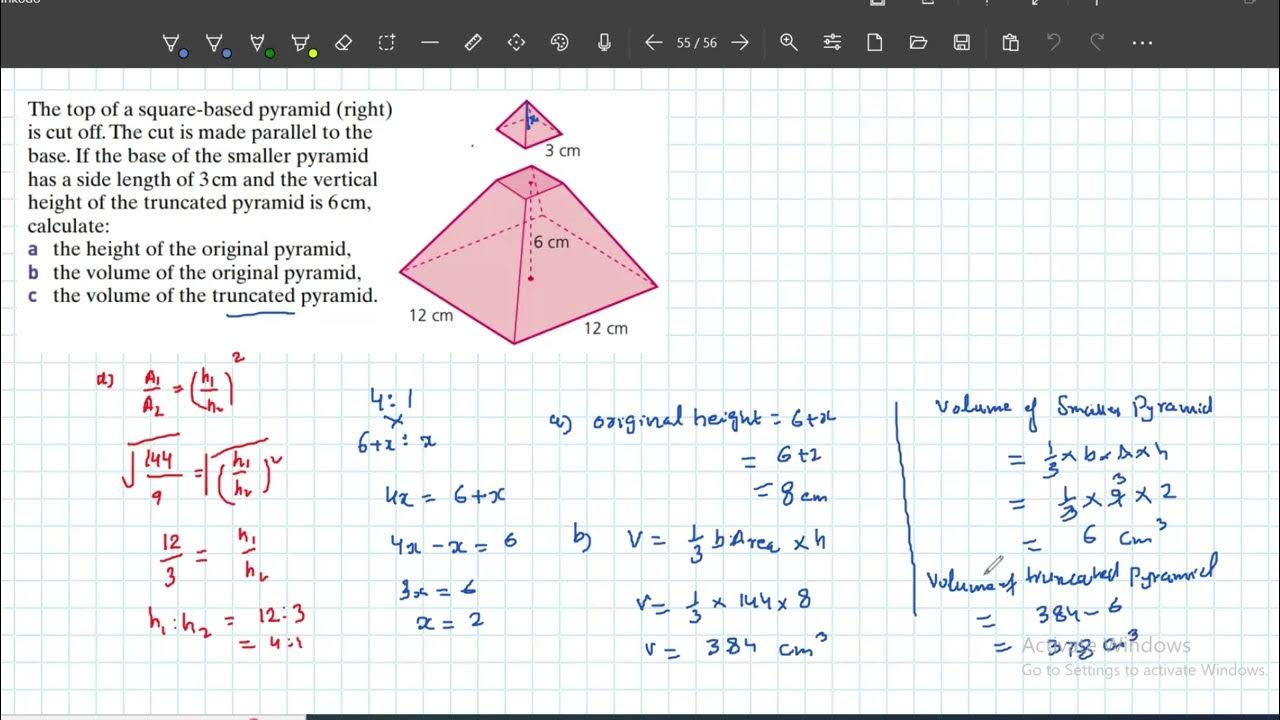 55 / 56
The top of a square-based pyramid (right)
is cut off. The cut is made parallel to the
base. If the base of the smaller pyramid
has a side length of 3 cm and the vertical
height of the truncated pyramid is 6 cm,
calculate:
a the height of the original pyramid,
b the volume of the original pyramid,
c the volume of the truncated pyramid.
x
3 cm
6 cm
12 cm
12 cm
A1/A2 = (h1/h2)^2
√144/9 = √(h1/h2)^2
12/3 = h1/h2
h1 : h2 = 12 : 3
= 4 : 1
4 : 1
6+x : x
4x = 6+x
4x - x = 6
3x = 6
x = 2
a) original height = 6+x
= 6+2
= 8 cm
b) V = 1/3 b.Area × h
V = 1/3 × 144 × 8
V = 384 cm^3
Volume of Smaller Pyramid
= 1/3 × b.A × h
= 1/3 × 9 3 × 2
= 6 cm^3
Volume of truncated pyramid
= 384 - 6
= 378 cm^3
Activate Windows
Go to Settings to activate Windows.